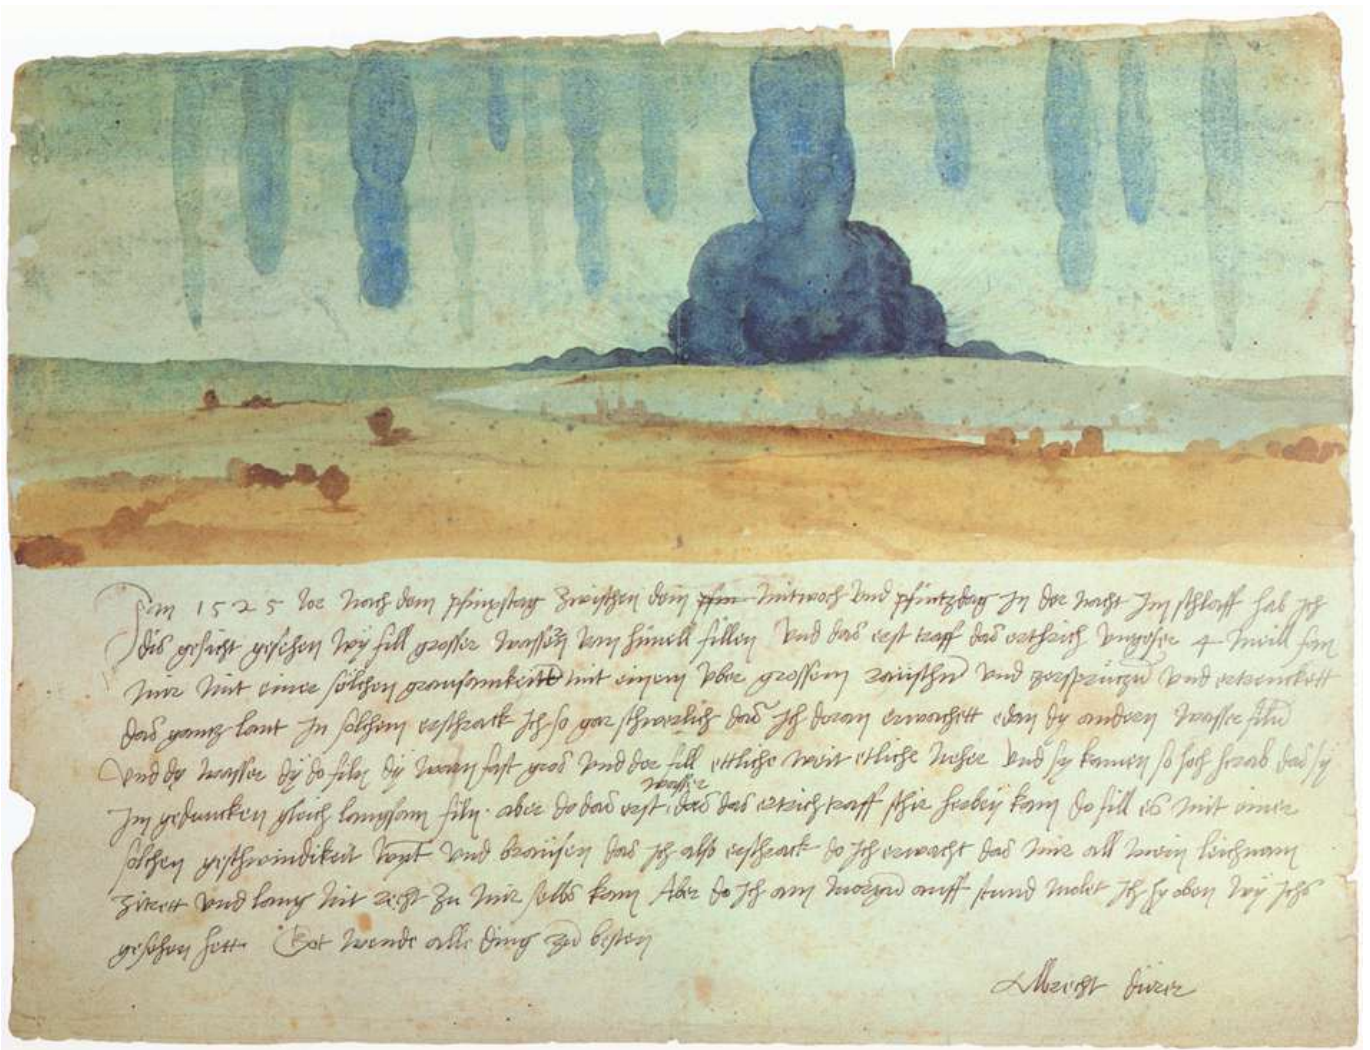 Im 1525 Jor nach dem pfinxstag zwischen dem pfin mitwoch und pfintzdag in der nacht im schlaff hab ich
dis gesicht gesehen wy fill grosser wassern vom himell fillen Und das erst traff das erthrich ungefer 4 meill fan
mir mit einer solchen grausamkeitt mit einem uber grossem raüschn und zersprützn und ertrenckett
das gannz lant In solchem erschrack ich so gar schwerlich das ich doran erwachett edan dy andern wasser filn
Und dy wasser dy do filn dy warn fast gros und der fill ettliche weit etliche neher und sy kamen so hoch herab das sy
wasser
im gedancken gleich langsam filn. aber do das erst das das ertrich traff schir herbey kam do fill es mit einer
solchen geschwindikeit wynt und braüsen das ich also erschrack do ich erwacht das mir all mein leichnam
zitrett und lang nit recht zu mir selbs kam Aber do ich am morgen auff stund molet ich hy oben wy ichs
gesehen hett. Got wende alle ding zu besten
Albrecht dürer